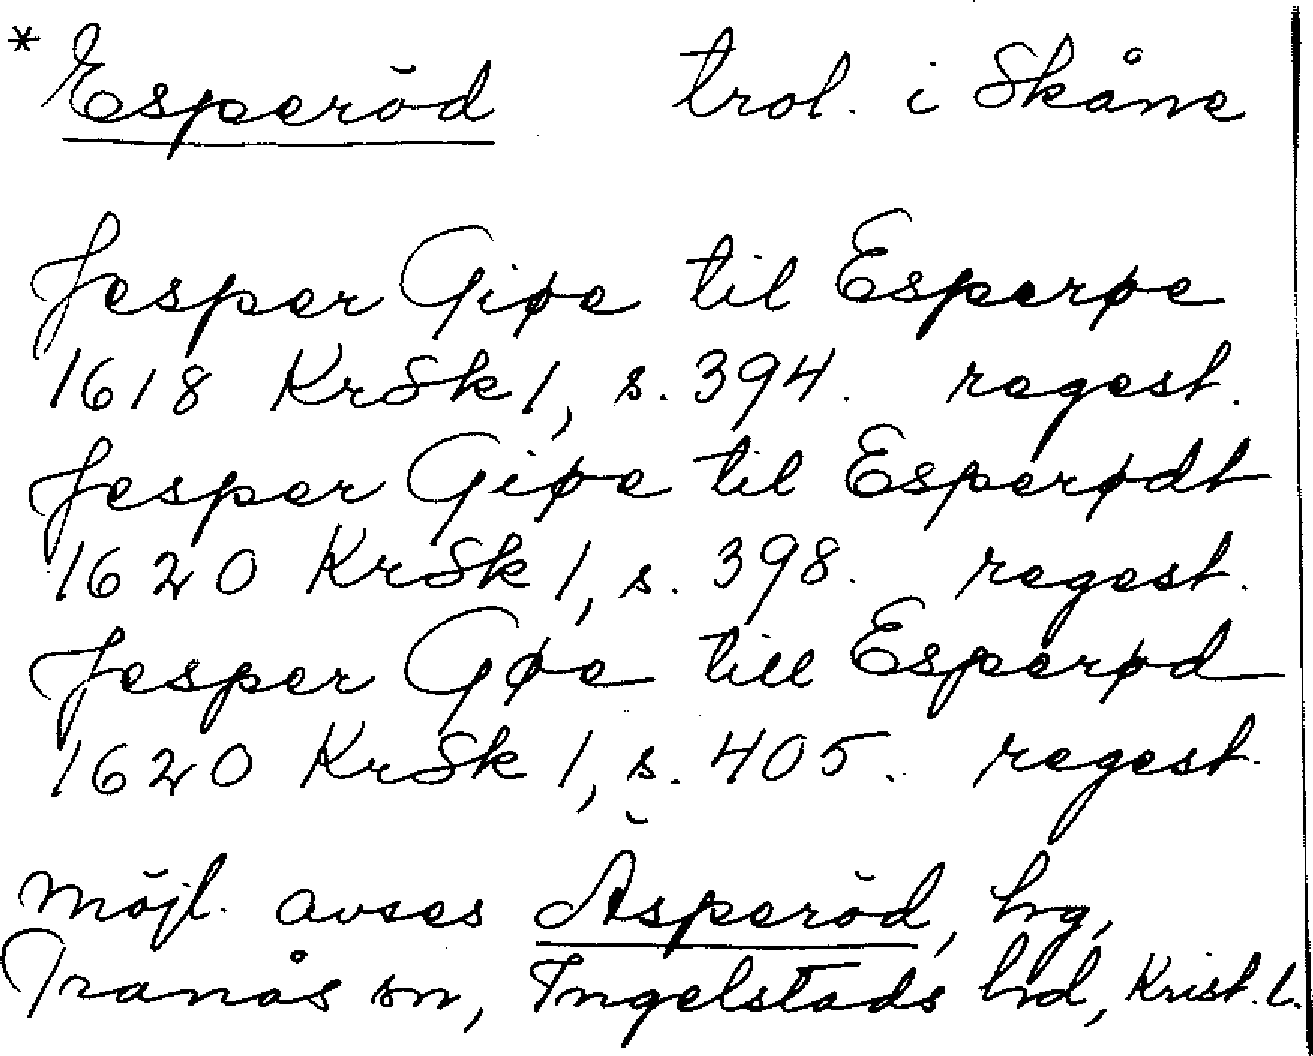 * Esperöd trol. i Skåne
Jesper Giøe til Esperøe
1618 KrSk 1, s. 394. regest.
Jesper Giøe til Esperødt
1620 KrSk 1, s. 398. regest.
Jesper Gøe till Esperød
1620 KrSk 1, s. 405. regest.
möjl. avses Äsperöd, hg,
Tranås sn, Ingelstads hd, Krist. l.